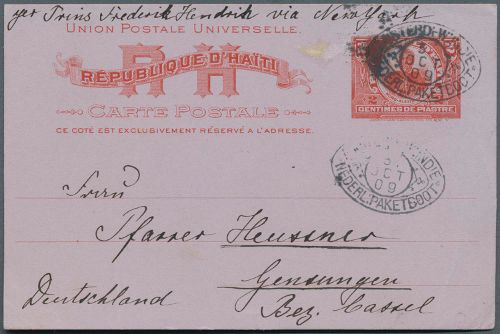 per Prins Frederik Hendrik via New York
UNION POSTALE UNIVERSELLE.
RH
RÉPUBLIQUE D'HAÏTI
CARTE POSTALE
CE CÔTÉ EST EXCLUSIVEMENT RÉSERVÉ A L'ADRESSE.
2 CENTIMES DE PIASTRE
OCT
09
NEDERL: PAKETBOOT
OCT
09
NEDERL: PAKETBOOT
Frau
Pfarrer Heussner
Gensungen
Deutschland
Bez. Cassel